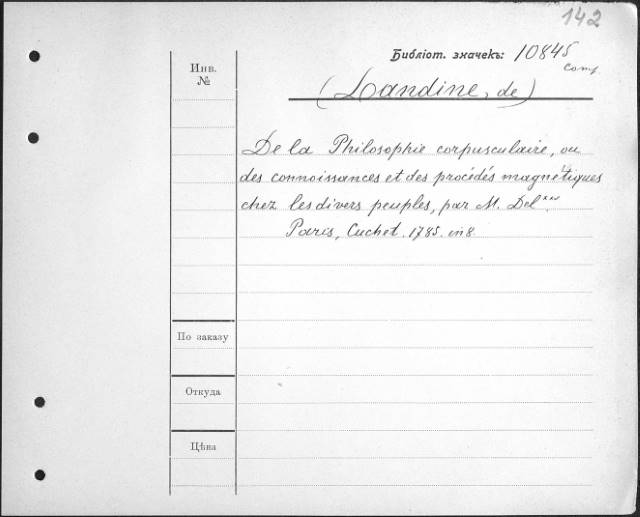 142
Библіот. значекъ: 10845
Comp.
Инв.
№
(Landine, de)
De la Philosophie corpusculaire, ou
des connoissances et des procédés magnétiques
chez les divers peuples, par M. Del***.
Paris, Cuchet. 1785. in 8
По заказу
Откуда
Цѣна